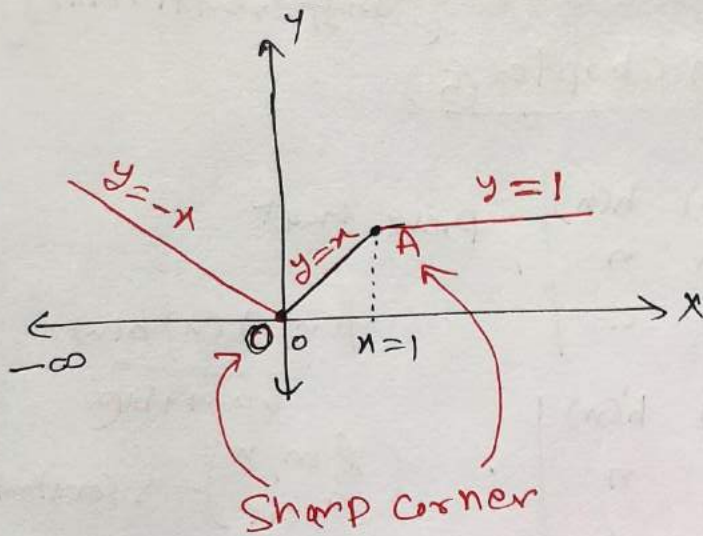 Y
y=-x
y=x
y=1
A
X
-∞
O
0
x=1
Sharp corner